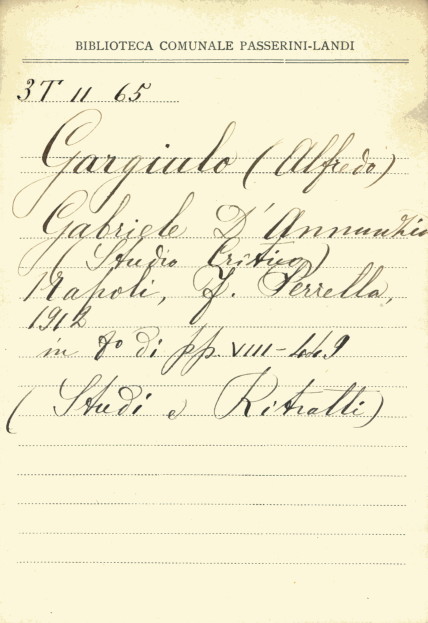 BIBLIOTECA COMUNALE PASSERINI-LANDI
3T 11 65
Gargiulo (Alfredo)
Gabriele D'Annunzio
(Studio Critico)
Napoli, F. Perrella,
1912
in 8º di pp. VIII-449
(Studi e Ritratti)